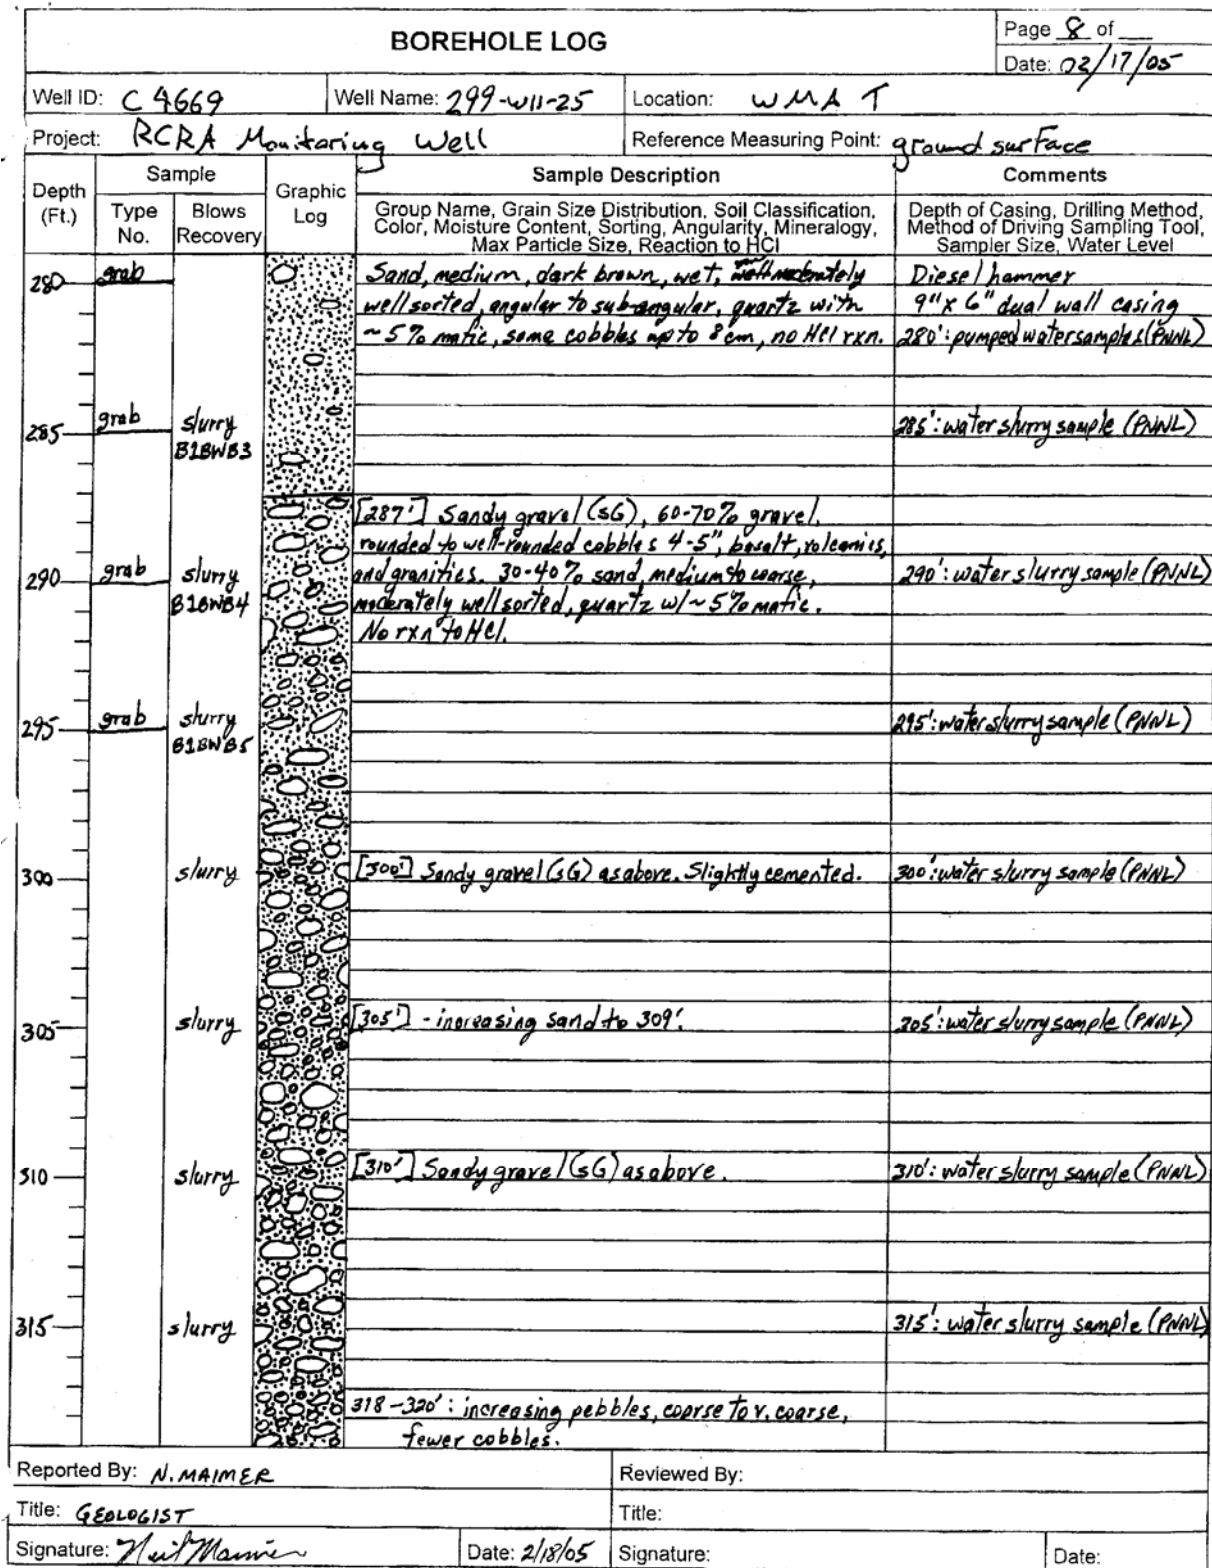 BOREHOLE LOG
Page 8 of
Date: 02/17/05
Well ID: C4669
Well Name: 299-W11-25
Location: WMA T
Project: RCRA Monitoring Well
Reference Measuring Point: ground surface
Depth (Ft.)
Sample
Type No.
Blows Recovery
Graphic Log
Sample Description
Group Name, Grain Size Distribution, Soil Classification,
Color, Moisture Content, Sorting, Angularity, Mineralogy,
Max Particle Size, Reaction to HCl
Comments
Depth of Casing, Drilling Method,
Method of Driving Sampling Tool,
Sampler Size, Water Level
280 grab Sand, medium, dark brown, wet, moderately Diesel hammer
well sorted, angular to sub-angular, quartz with 9" x 6" dual wall casing
~5% mafic, some cobbles up to 8cm, no HCl rxn. 280': pumped water samples (PNNL)
285 grab slurry 285': water slurry sample (PNNL)
B1BWB3
[287'] Sandy gravel (sG), 60-70% gravel,
rounded to well-rounded cobbles 4-5", basalt, volcanics,
290 grab slurry and granities. 30-40% sand, medium to coarse, 290': water slurry sample (PNNL)
B1BWB4 moderately well sorted, quartz w/ ~5% mafic.
No rxn to HCl.
295 grab slurry 295': water slurry sample (PNNL)
B1BWB5
300 slurry [300'] Sandy gravel (sG) as above. Slightly cemented. 300': water slurry sample (PNNL)
305 slurry [305'] - increasing sand to 309'. 305': water slurry sample (PNNL)
310 slurry [310'] Sandy gravel (sG) as above. 310': water slurry sample (PNNL)
315 slurry 315': water slurry sample (PNNL)
318-320': increasing pebbles, coarse to v. coarse,
fewer cobbles.
Reported By: N. MAIMER
Reviewed By:
Title: GEOLOGIST
Title:
Signature: Neil Maimer
Date: 2/18/05
Signature:
Date: